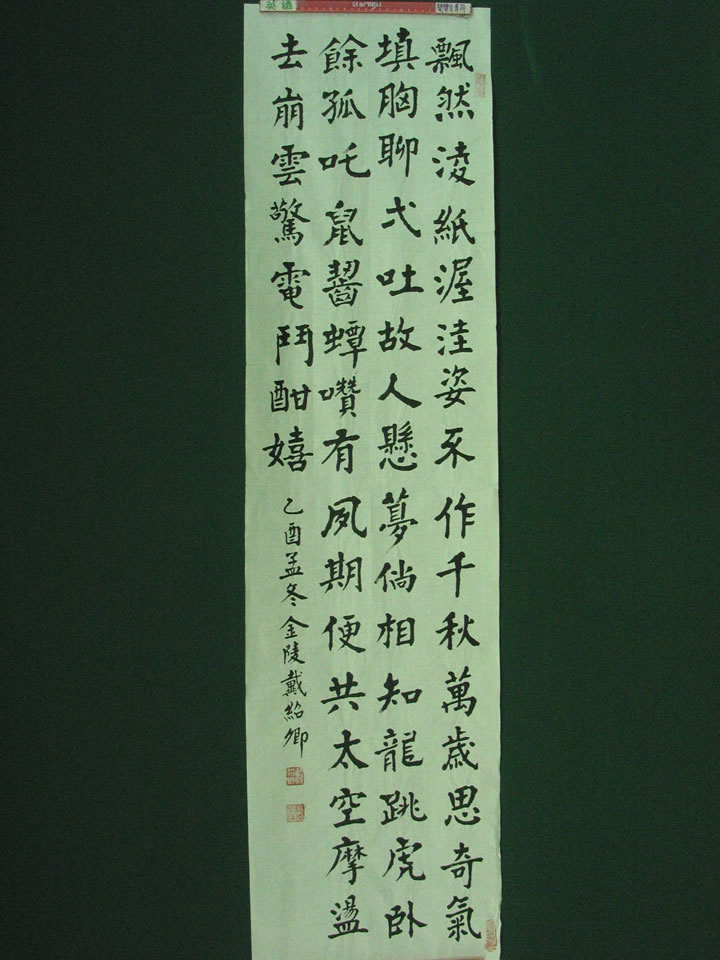 飄然淩紙渥洼姿不作千秋萬歲思奇氣
填胸聊弌吐故人懸夢倘相知龍跳虎卧
餘孤吒鼠齧蟫囋有夙期便共太空摩盪
去崩雲驚電鬥酣嬉
乙酉孟冬金陵戴紹卿